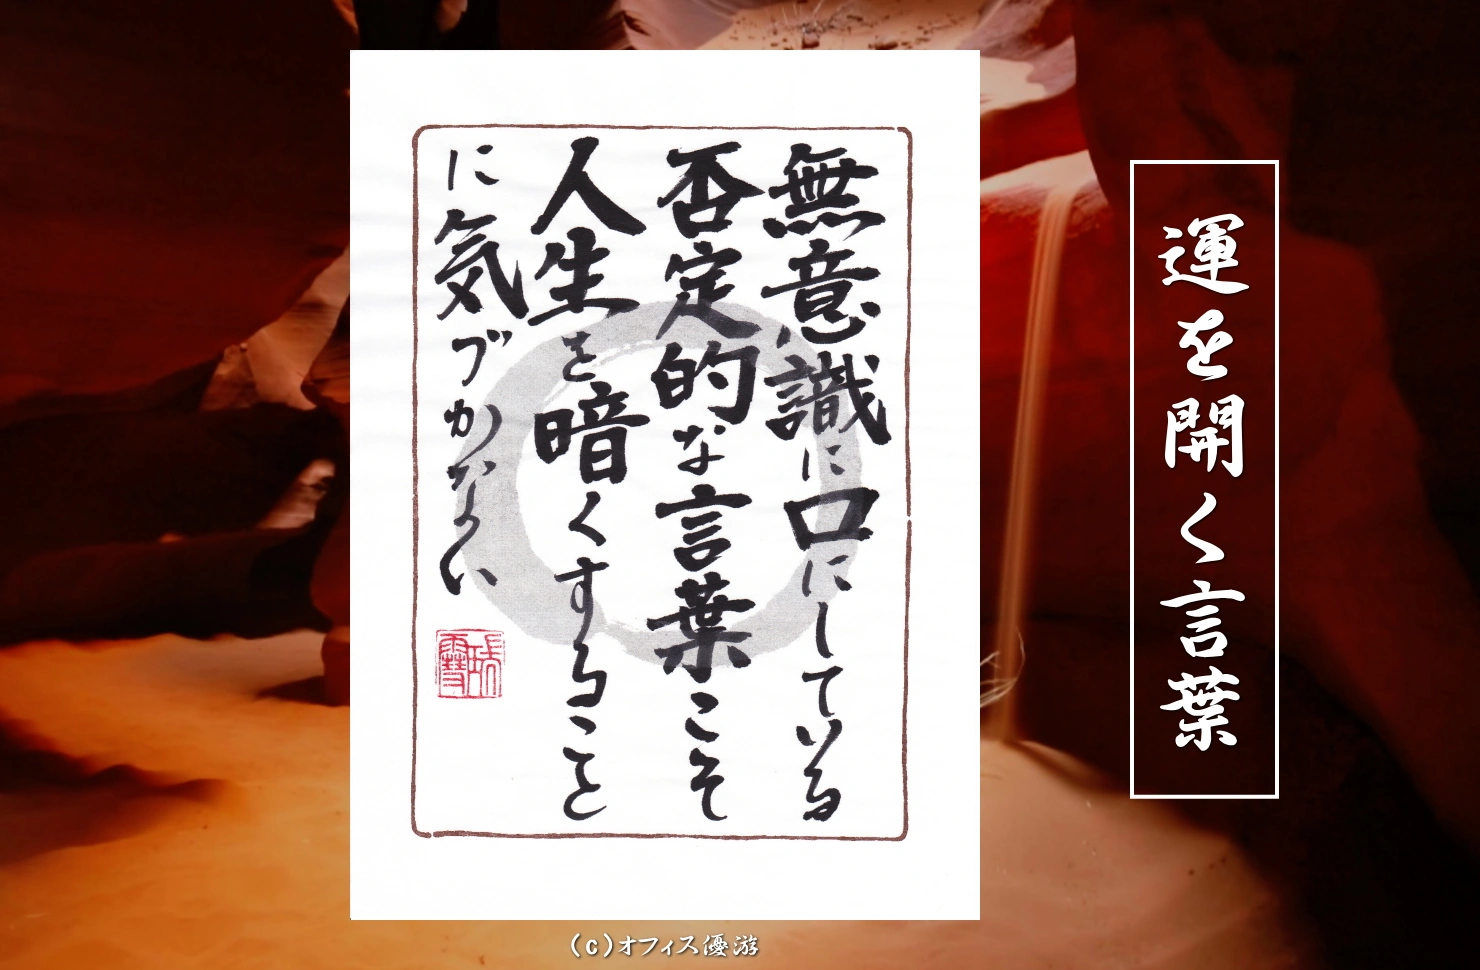 運を開く言葉
無意識に口にしている
否定的な言葉こそ
人生を暗くすること
に気づかがよい
(c)オフィス優游